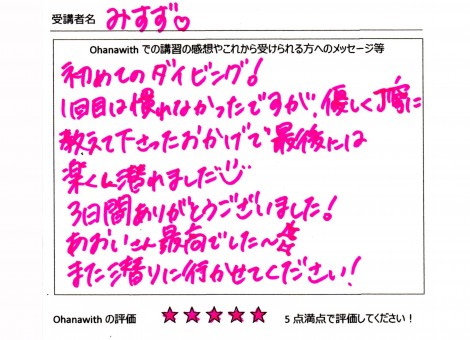 受講者名 みすず♡
Ohanawith での講習の感想やこれから受けられる方へのメッセージ等
初めてのダイビング!
1回目は慣れなかったですが、優しく丁寧に
教えて下さったおかげで最後には
楽しく潜れました
3日間ありがとうございました!
あおいさん最高でした〜
また潜りに行かせてください!
Ohanawith の評価 ★★★★★ 5 点満点で評価してください!